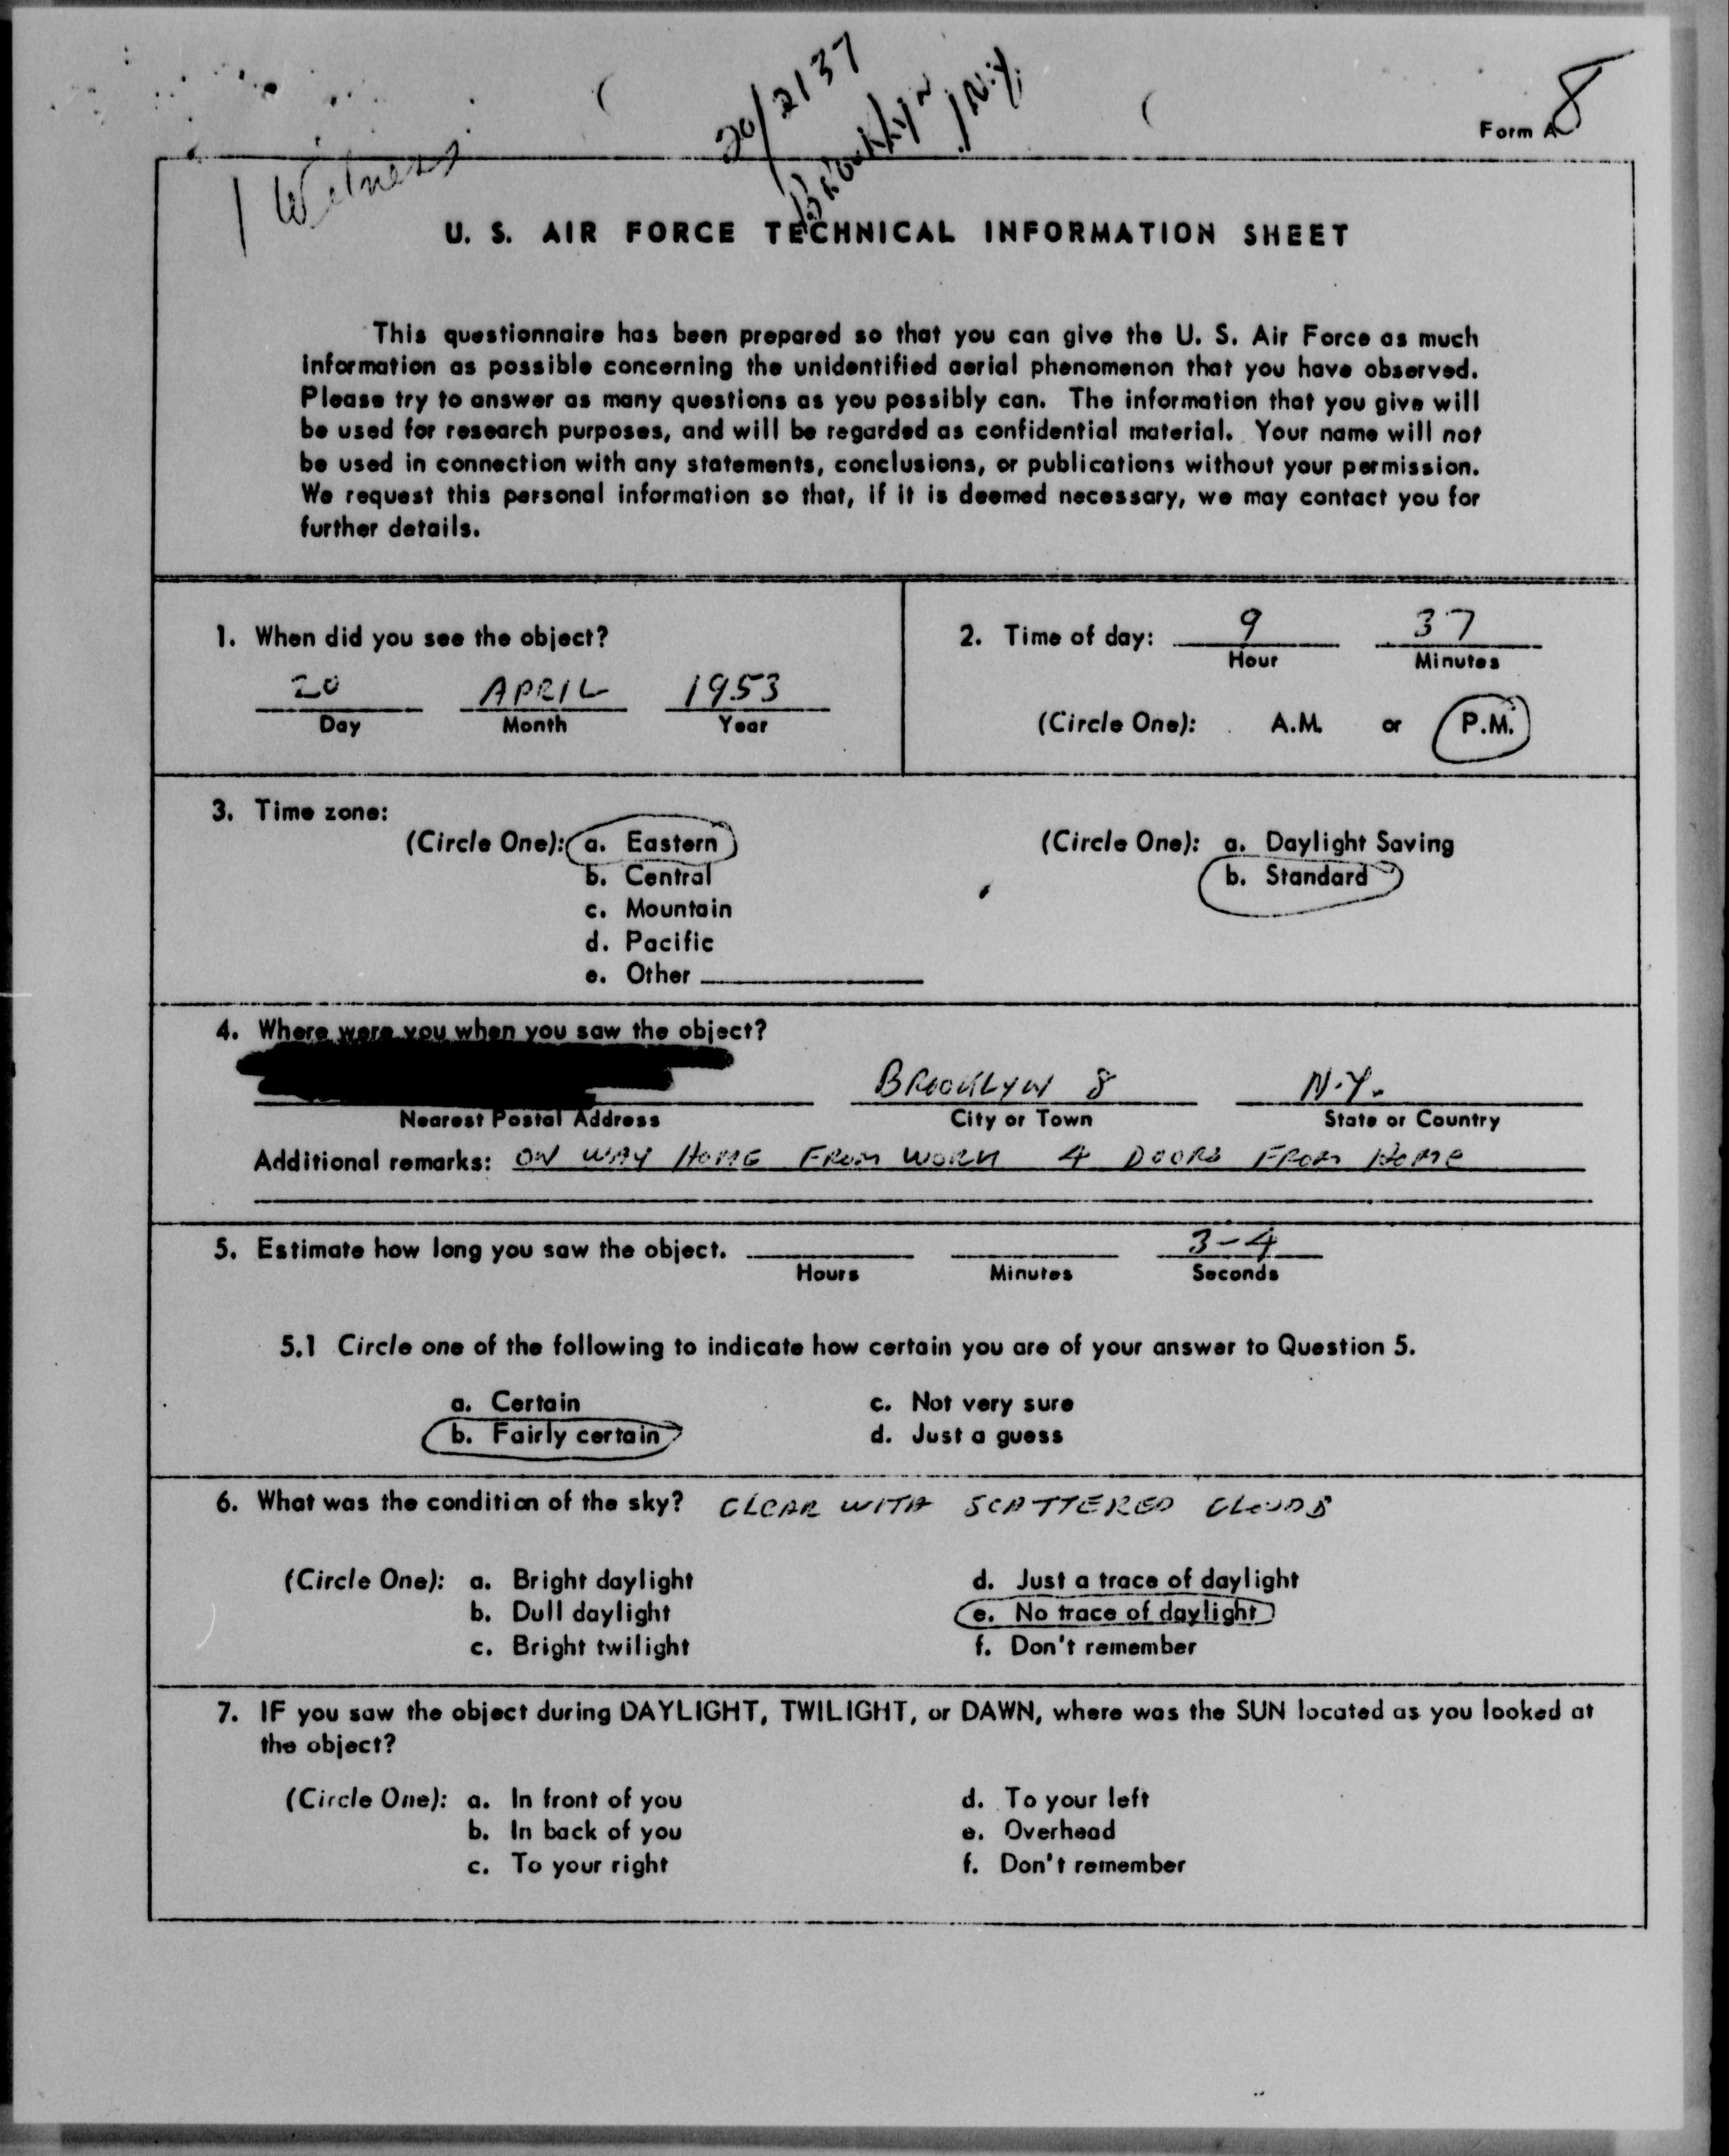 20/2137
Brooklyn, N.Y.
8
Form A
1 Witness
U. S. AIR FORCE TECHNICAL INFORMATION SHEET
This questionnaire has been prepared so that you can give the U. S. Air Force as much
information as possible concerning the unidentified aerial phenomenon that you have observed.
Please try to answer as many questions as you possibly can. The information that you give will
be used for research purposes, and will be regarded as confidential material. Your name will not
be used in connection with any statements, conclusions, or publications without your permission.
We request this personal information so that, if it is deemed necessary, we may contact you for
further details.
1. When did you see the object?
20 APRIL 1953
Day Month Year
2. Time of day: 9 37
Hour Minutes
(Circle One): A.M. or P.M.
3. Time zone:
(Circle One): a. Eastern
b. Central
c. Mountain
d. Pacific
e. Other
(Circle One): a. Daylight Saving
b. Standard
4. Where were you when you saw the object?
BROOKLYN 8 N.Y.
Nearest Postal Address City or Town State or Country
Additional remarks: ON WAY HOME FROM WORK 4 DOORS FROM HOME
5. Estimate how long you saw the object. 3-4
Hours Minutes Seconds
5.1 Circle one of the following to indicate how certain you are of your answer to Question 5.
a. Certain
b. Fairly certain
c. Not very sure
d. Just a guess
6. What was the condition of the sky? CLEAR WITH SCATTERED CLOUDS
(Circle One): a. Bright daylight
b. Dull daylight
c. Bright twilight
d. Just a trace of daylight
e. No trace of daylight
f. Don't remember
7. IF you saw the object during DAYLIGHT, TWILIGHT, or DAWN, where was the SUN located as you looked at
the object?
(Circle One): a. In front of you
b. In back of you
c. To your right
d. To your left
e. Overhead
f. Don't remember